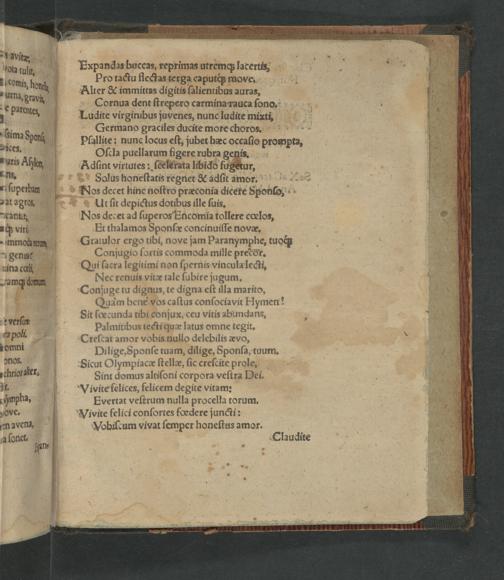 s avitæ,
vota tulit,
comis, honesta
urna, gravis,
e parentes,
issima Sponsa,
ices.
auris Asylon,
ns,
superbam
at agros.
eantur,
viri
mmoda totum,
genus?
uina cœli,
domum
e versus
ea poli.
omni
onos.
chrior alter,
it.
ympha,
ove.
em avena,
sonet.
Expandas buccas, reprimas utremq; lacertis,
Pro tactu flectas terga caputq; move.
Alter & immittas digitis salientibus auras,
Cornua dent strepero carmina rauca sono.
Ludite virginibus juvenes, nunc ludite mixti,
Germano graciles ducite more choros.
Psallite: nunc locus est, jubet hæc occasio prompta,
Oscla puellarum figere rubra genis.
Adsint virtutes: scelerata libido fugetur,
Solus honestatis regnet & adsit amor.
Nos decet hinc nostro præconia dicere Sponso,
Ut sit depictus dotibus ille suis.
Nos decet ad superos Encomia tollere cœlos,
Et thalamos Sponsæ concinuisse novæ.
Gratulor ergo tibi, nove jam Paranymphe, tuoq;
Conjugio fortis commoda mille precor.
Qui sacra legitimi non spernis vincula lecti,
Nec renuis vitæ tale subire jugum.
Conjuge tu dignus, te digna est illa marito,
Quàm benè vos castus consociavit Hymen!
Sit fœcunda tibi conjux, ceu vitis abundans,
Palmitibus tecti quæ latus omne tegit.
Crescat amor vobis nullo delebilis ævo,
Dilige, Sponse tuam, dilige, Sponsa, tuum.
Sicut Olympiacæ stellæ, sic crescite prole,
Sint domus altisoni corpora vestra Dei.
Vivite felices, felicem degite vitam:
Evertat vestrum nulla procella torum.
Vivite felici consortes fœdere juncti:
Vobiscum vivat semper honestus amor.
Claudite